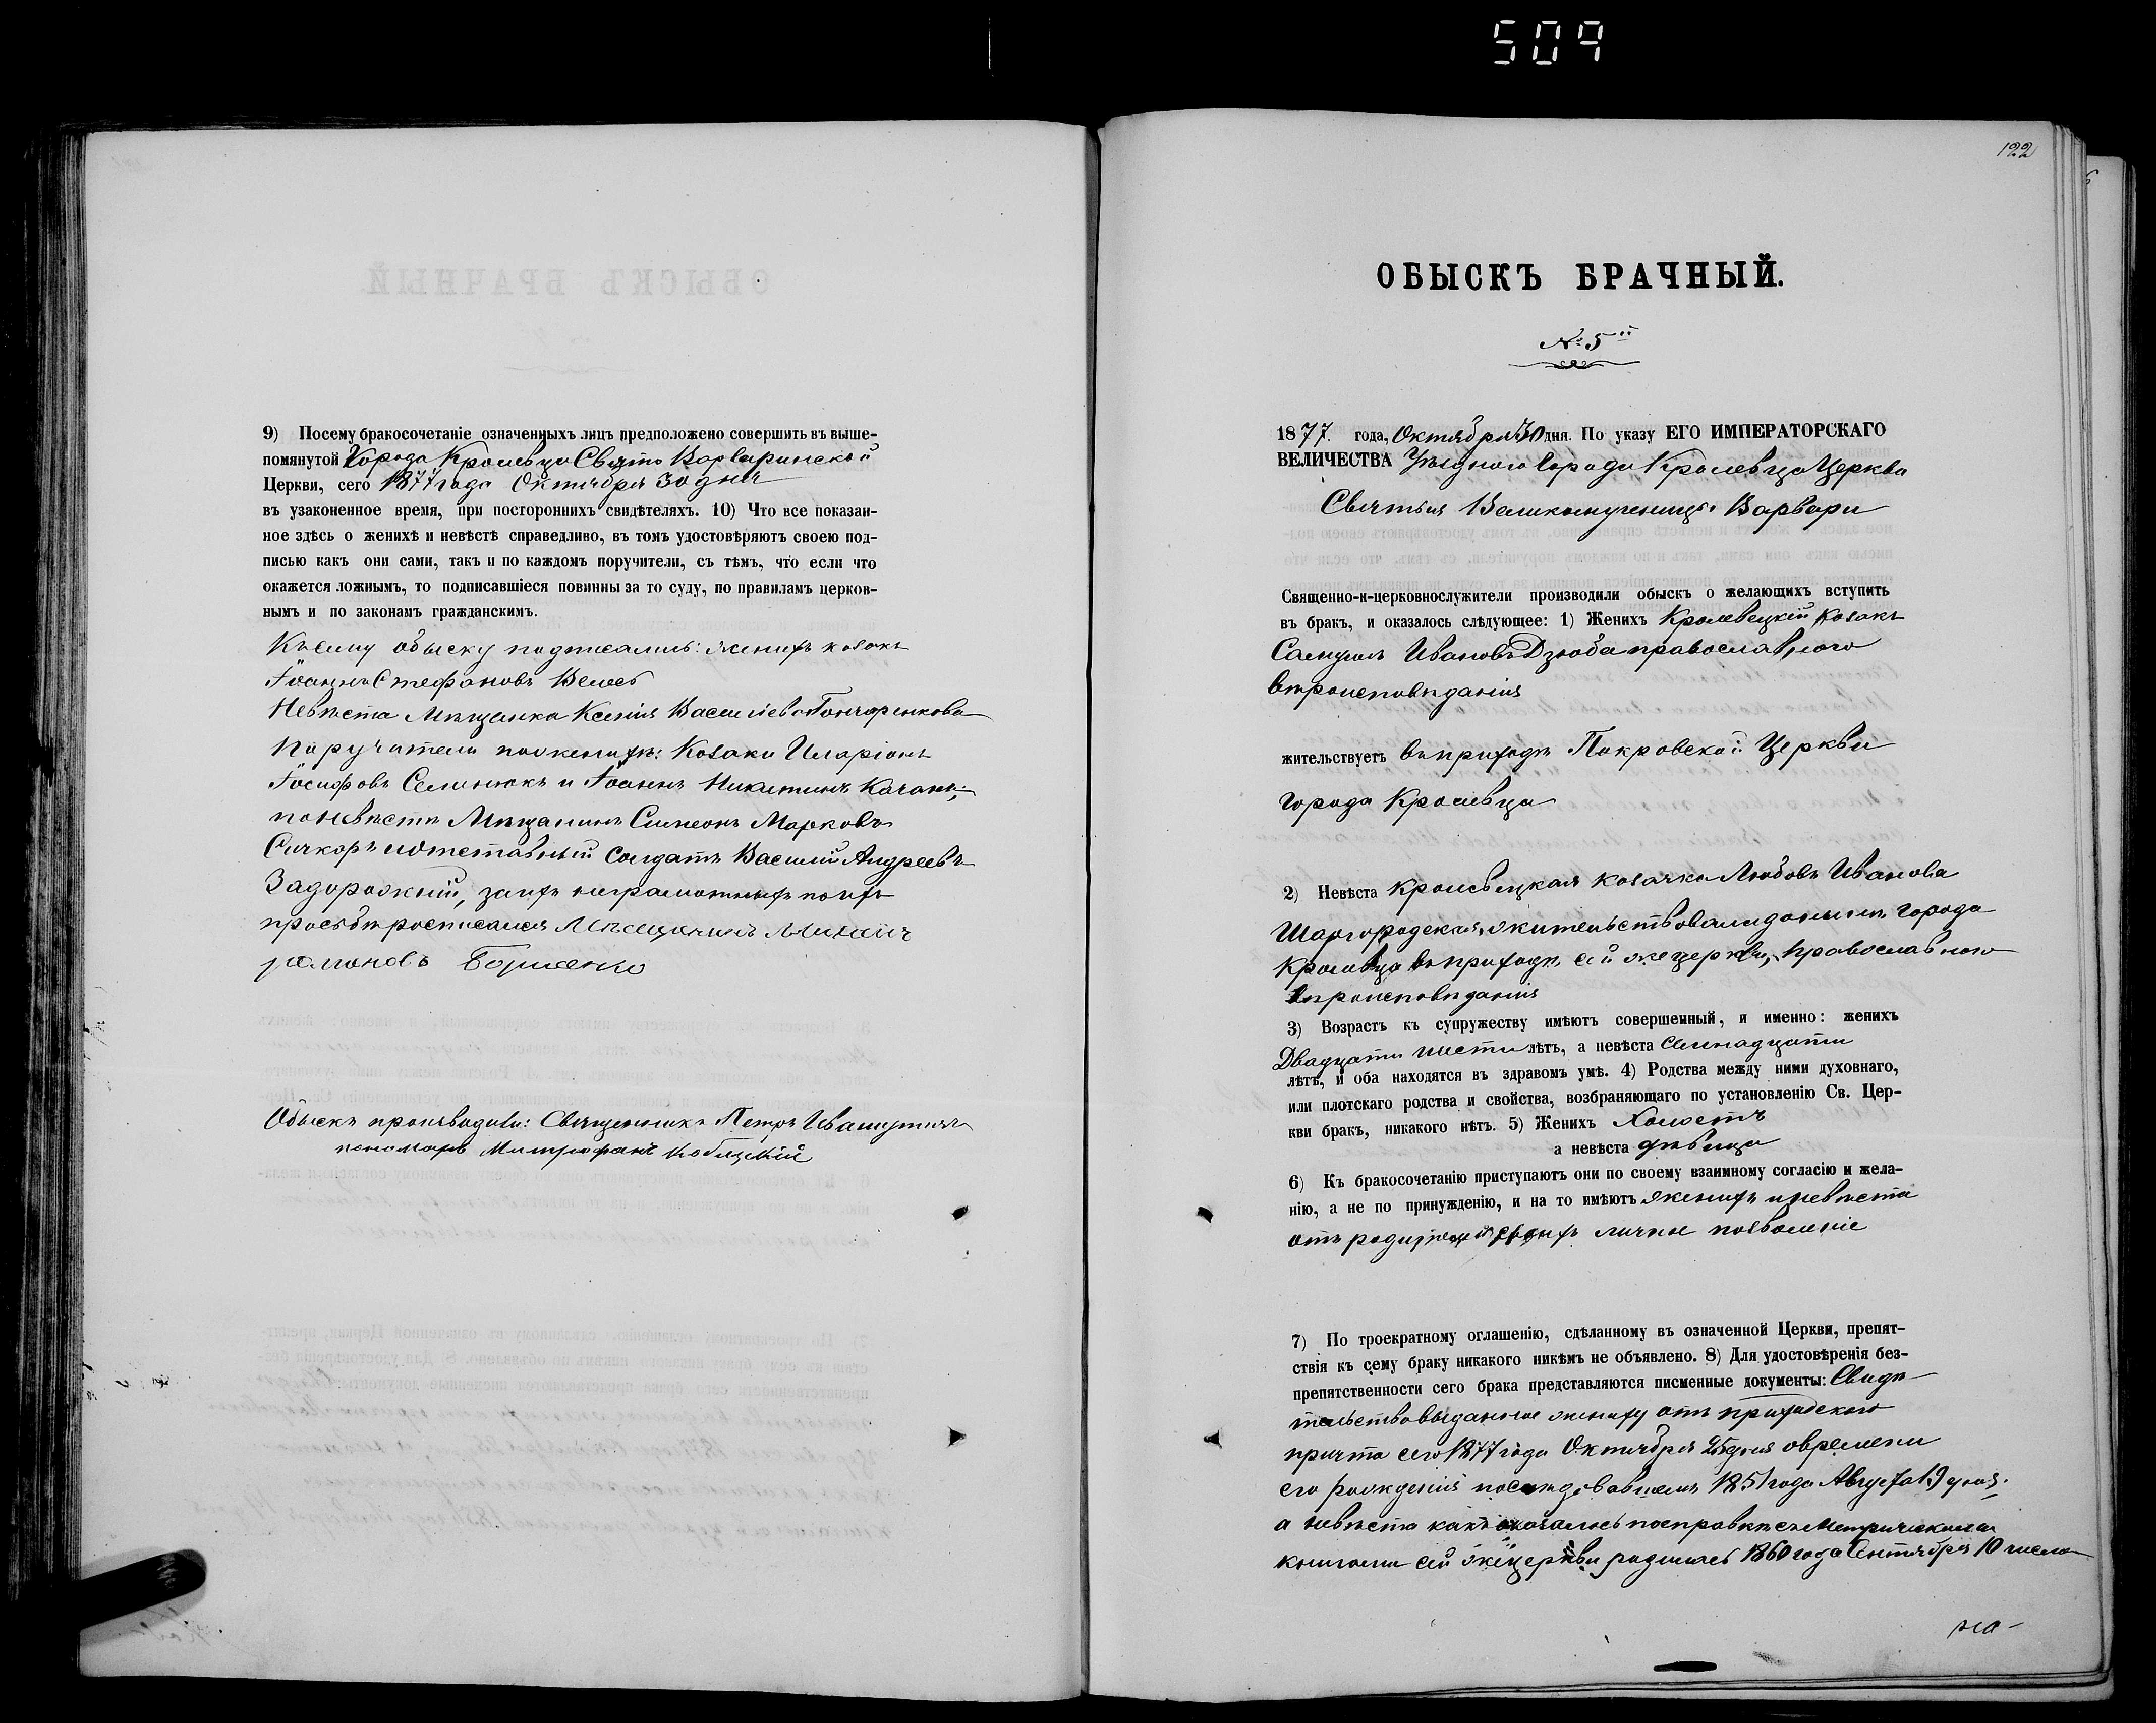 509
9) Посему бракосочетаніе означенныхъ лицъ предположено совершить въ выше-
помянутой Города Кролевца Свято Варваринской
Церкви, сего 1877 года Октября 30 дня
въ узаконенное время, при постороннихъ свидѣтеляхъ. 10) Что все показан-
ное здѣсь о женихѣ и невѣстѣ справедливо, въ томъ удостовѣряютъ своею под-
писью какъ они сами, такъ и по каждомъ поручители, съ тѣмъ, что если что
окажется ложнымъ, то подписавшіеся повинны за то суду, по правиламъ церков-
нымъ и по законамъ гражданскимъ.
Къ сему обыску подписались: женихъ козакъ
Іоаннъ Стефановъ
Невѣста Мѣщанка Ксенія Васильева Гончаренкова
Поручители по женихѣ: Козаки Иларіонъ
Іосифовъ Селинюкъ и Іоаннъ Никитинъ Качанъ;
по невѣстѣ Мѣщанинъ Симеонъ Марковъ
Сичкарь и отставный солдатъ Василій Андреевъ
Задорожній, за ихъ неграмотныхъ по ихъ
просьбѣ росписался Мѣщанинъ
Обыскъ производили: Священникъ Петръ
пономарь Митрофанъ
122
ОБЫСКЪ БРАЧНЫЙ.
№ 5й
1877 года, Октября 30 дня. По указу ЕГО ИМПЕРАТОРСКАГО
ВЕЛИЧЕСТВА Уѣздного Города Кролевца Церкви
Святыя Великомученицы Варвары
Священно-и-церковнослужители производили обыскъ о желающихъ вступить
въ бракъ, и оказалось слѣдующее: 1) Женихъ Кролевецкій Козакъ
Самуилъ Ивановъ Дзюба православного
вѣроисповѣданія
жительствуетъ въ приходѣ Покровской Церкви
города Кролевца
2) Невѣста Кролевецкая козачка Любовь Иванова
Шаргородская, жительствовала донынѣ города
Кролевца въ приходѣ сей же церкви, православного
вѣроисповѣданія
3) Возрастъ къ супружеству имѣютъ совершенный, и именно: женихъ
Двадцати шести лѣтъ, а невѣста семнадцати
лѣтъ, и оба находятся въ здравомъ умѣ. 4) Родства между ними духовнаго,
или плотскаго родства и свойства, возбраняющаго по установленію Св. Цер-
кви бракъ, никакого нѣтъ. 5) Женихъ Холостъ
а невѣста дѣвица
6) Къ бракосочетанію приступаютъ они по своему взаимному согласію и жела-
нію, а не по принужденію, и на то имѣютъ женихъ и невѣста
отъ родителей своихъ личные позволеніе
7) По троекратному оглашенію, сдѣланному въ означенной Церкви, препят-
ствія къ сему браку никакого никѣмъ не объявлено. 8) Для удостовѣренія без-
препятственности сего брака представляются писменные документы: Свидѣ-
тельство выданное жениху отъ приходского
причта сего 1877 года Октября 25 дня о времени
его рожденія послѣдовавшемъ 1851 года Августа 19 дня;
а невѣста какъ оказалось по справкѣ съ Метрическими
книгами сей же церкви родилась 1860 года Сентября 10 числа
на-